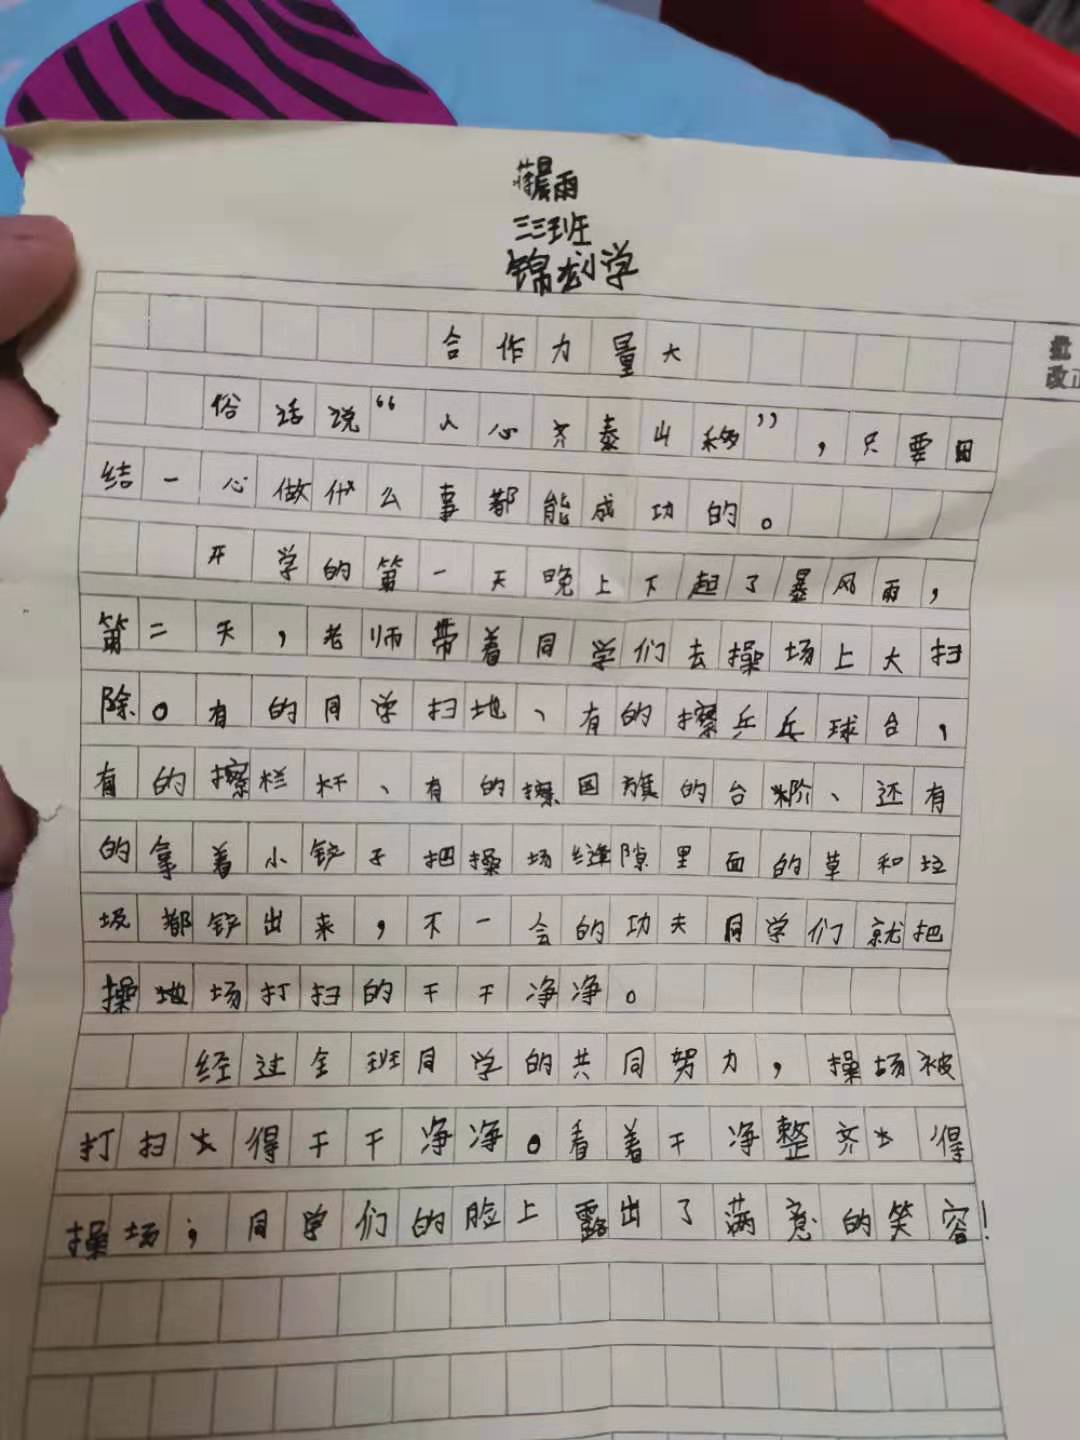 蒋晨雨
三三班
锦龙小学
合作力量大
批
改正
俗话说“人心齐泰山移”，只要团
结一心做什么事都能成功的。
开学的第一天晚上下起了暴风雨，
第二天，老师带着同学们去操场上大扫
除。有的同学扫地、有的擦乒乓球台，
有的擦栏杆、有的擦国旗的台阶、还有
的拿着小铲子把操场缝隙里面的草和垃
圾都铲出来，不一会的功夫同学们就把
操场打扫的干干净净。
经过全班同学的共同努力，操场被
打扫得干干净净。看着干净整齐得
操场；同学们的脸上露出了满意的笑容！